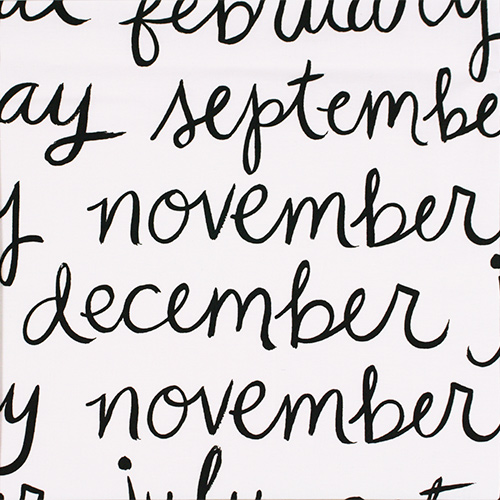 february
ay septembe
y november
december j
y november
july